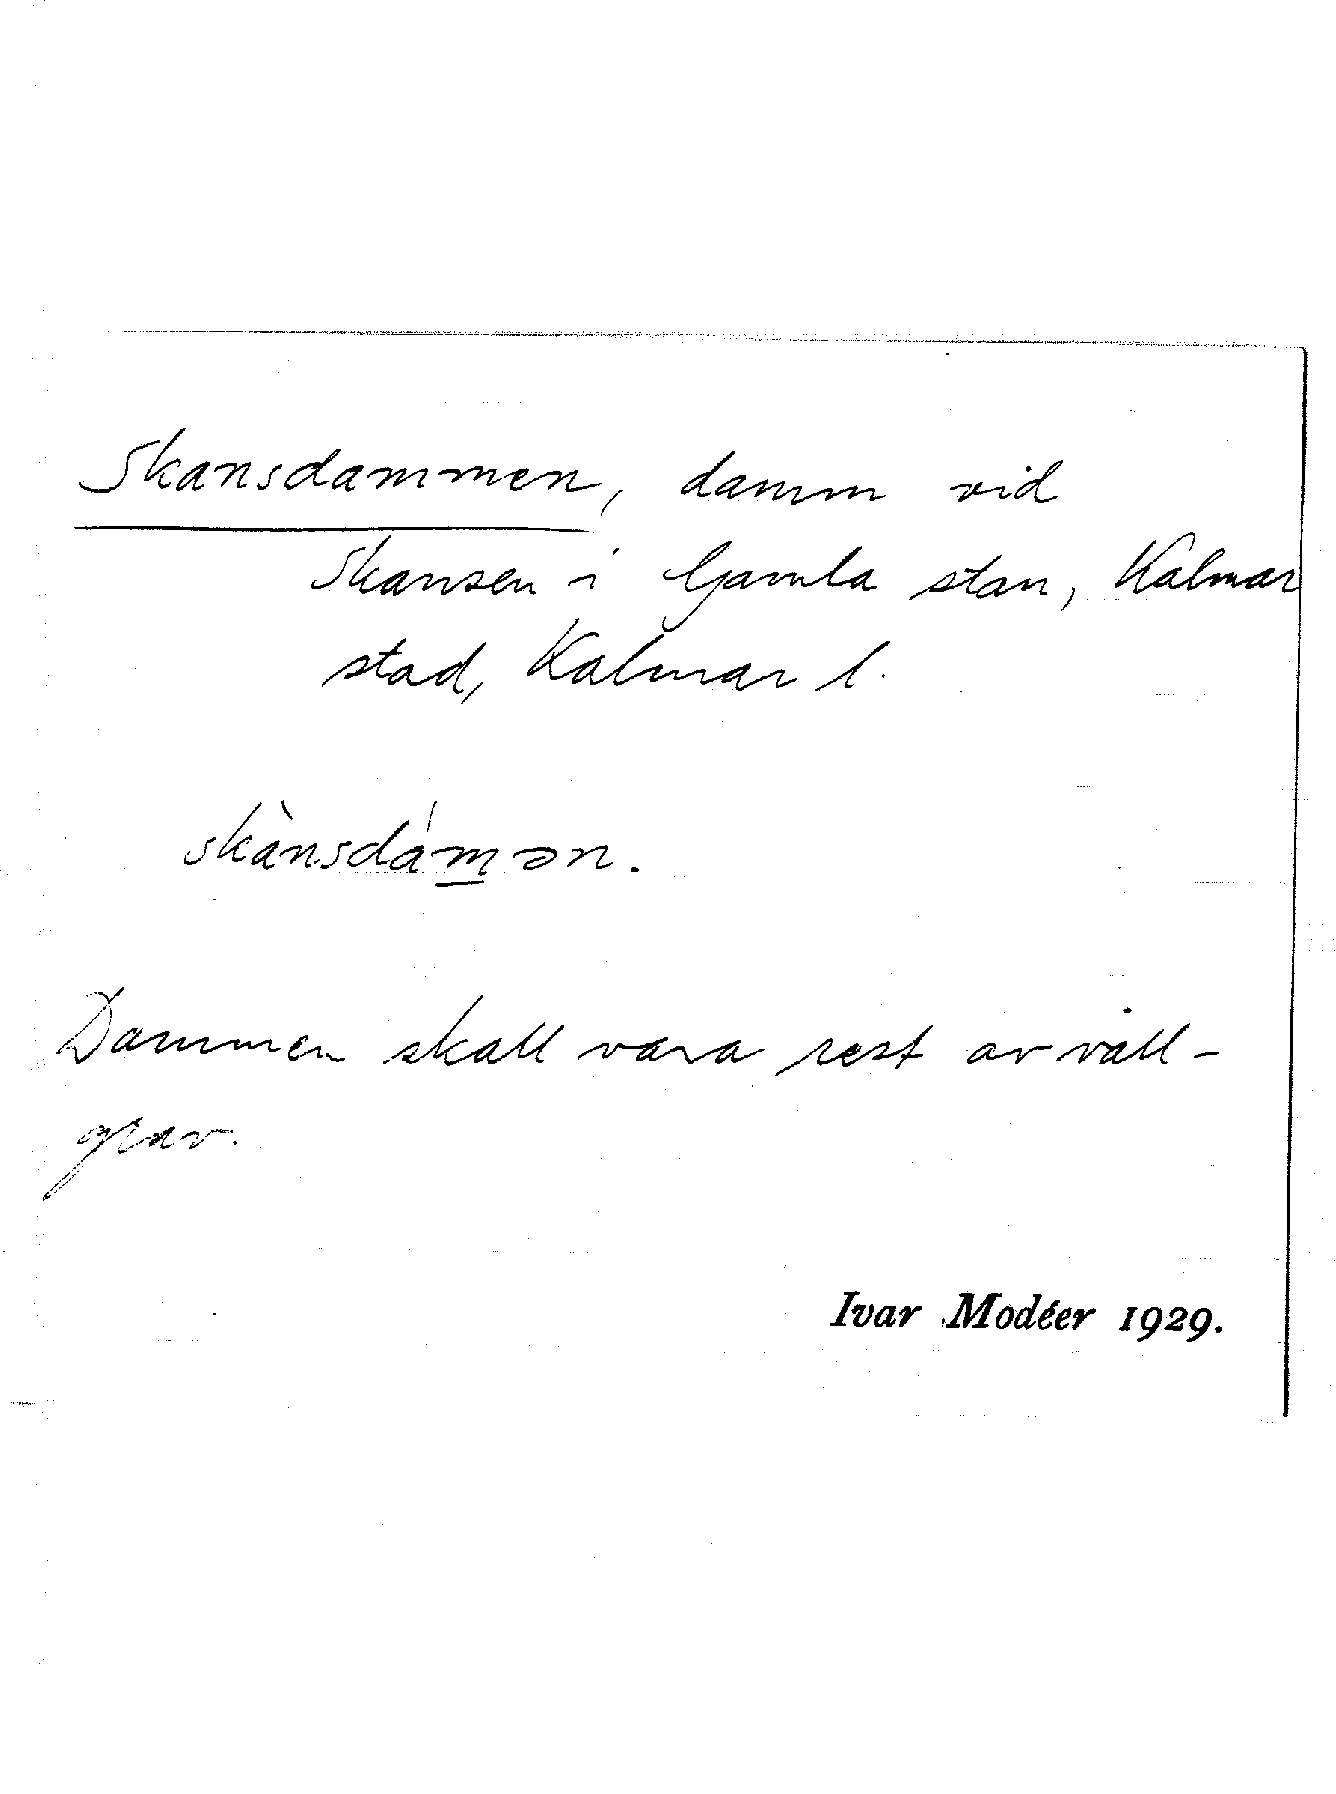 Skansdammen, damm vid
Skansen i Gamla stan, Kalmar
stad, Kalmar l.
skànsdámən.
Dammen skall vara rest av vall-
grav.
Ivar Modéer 1929.